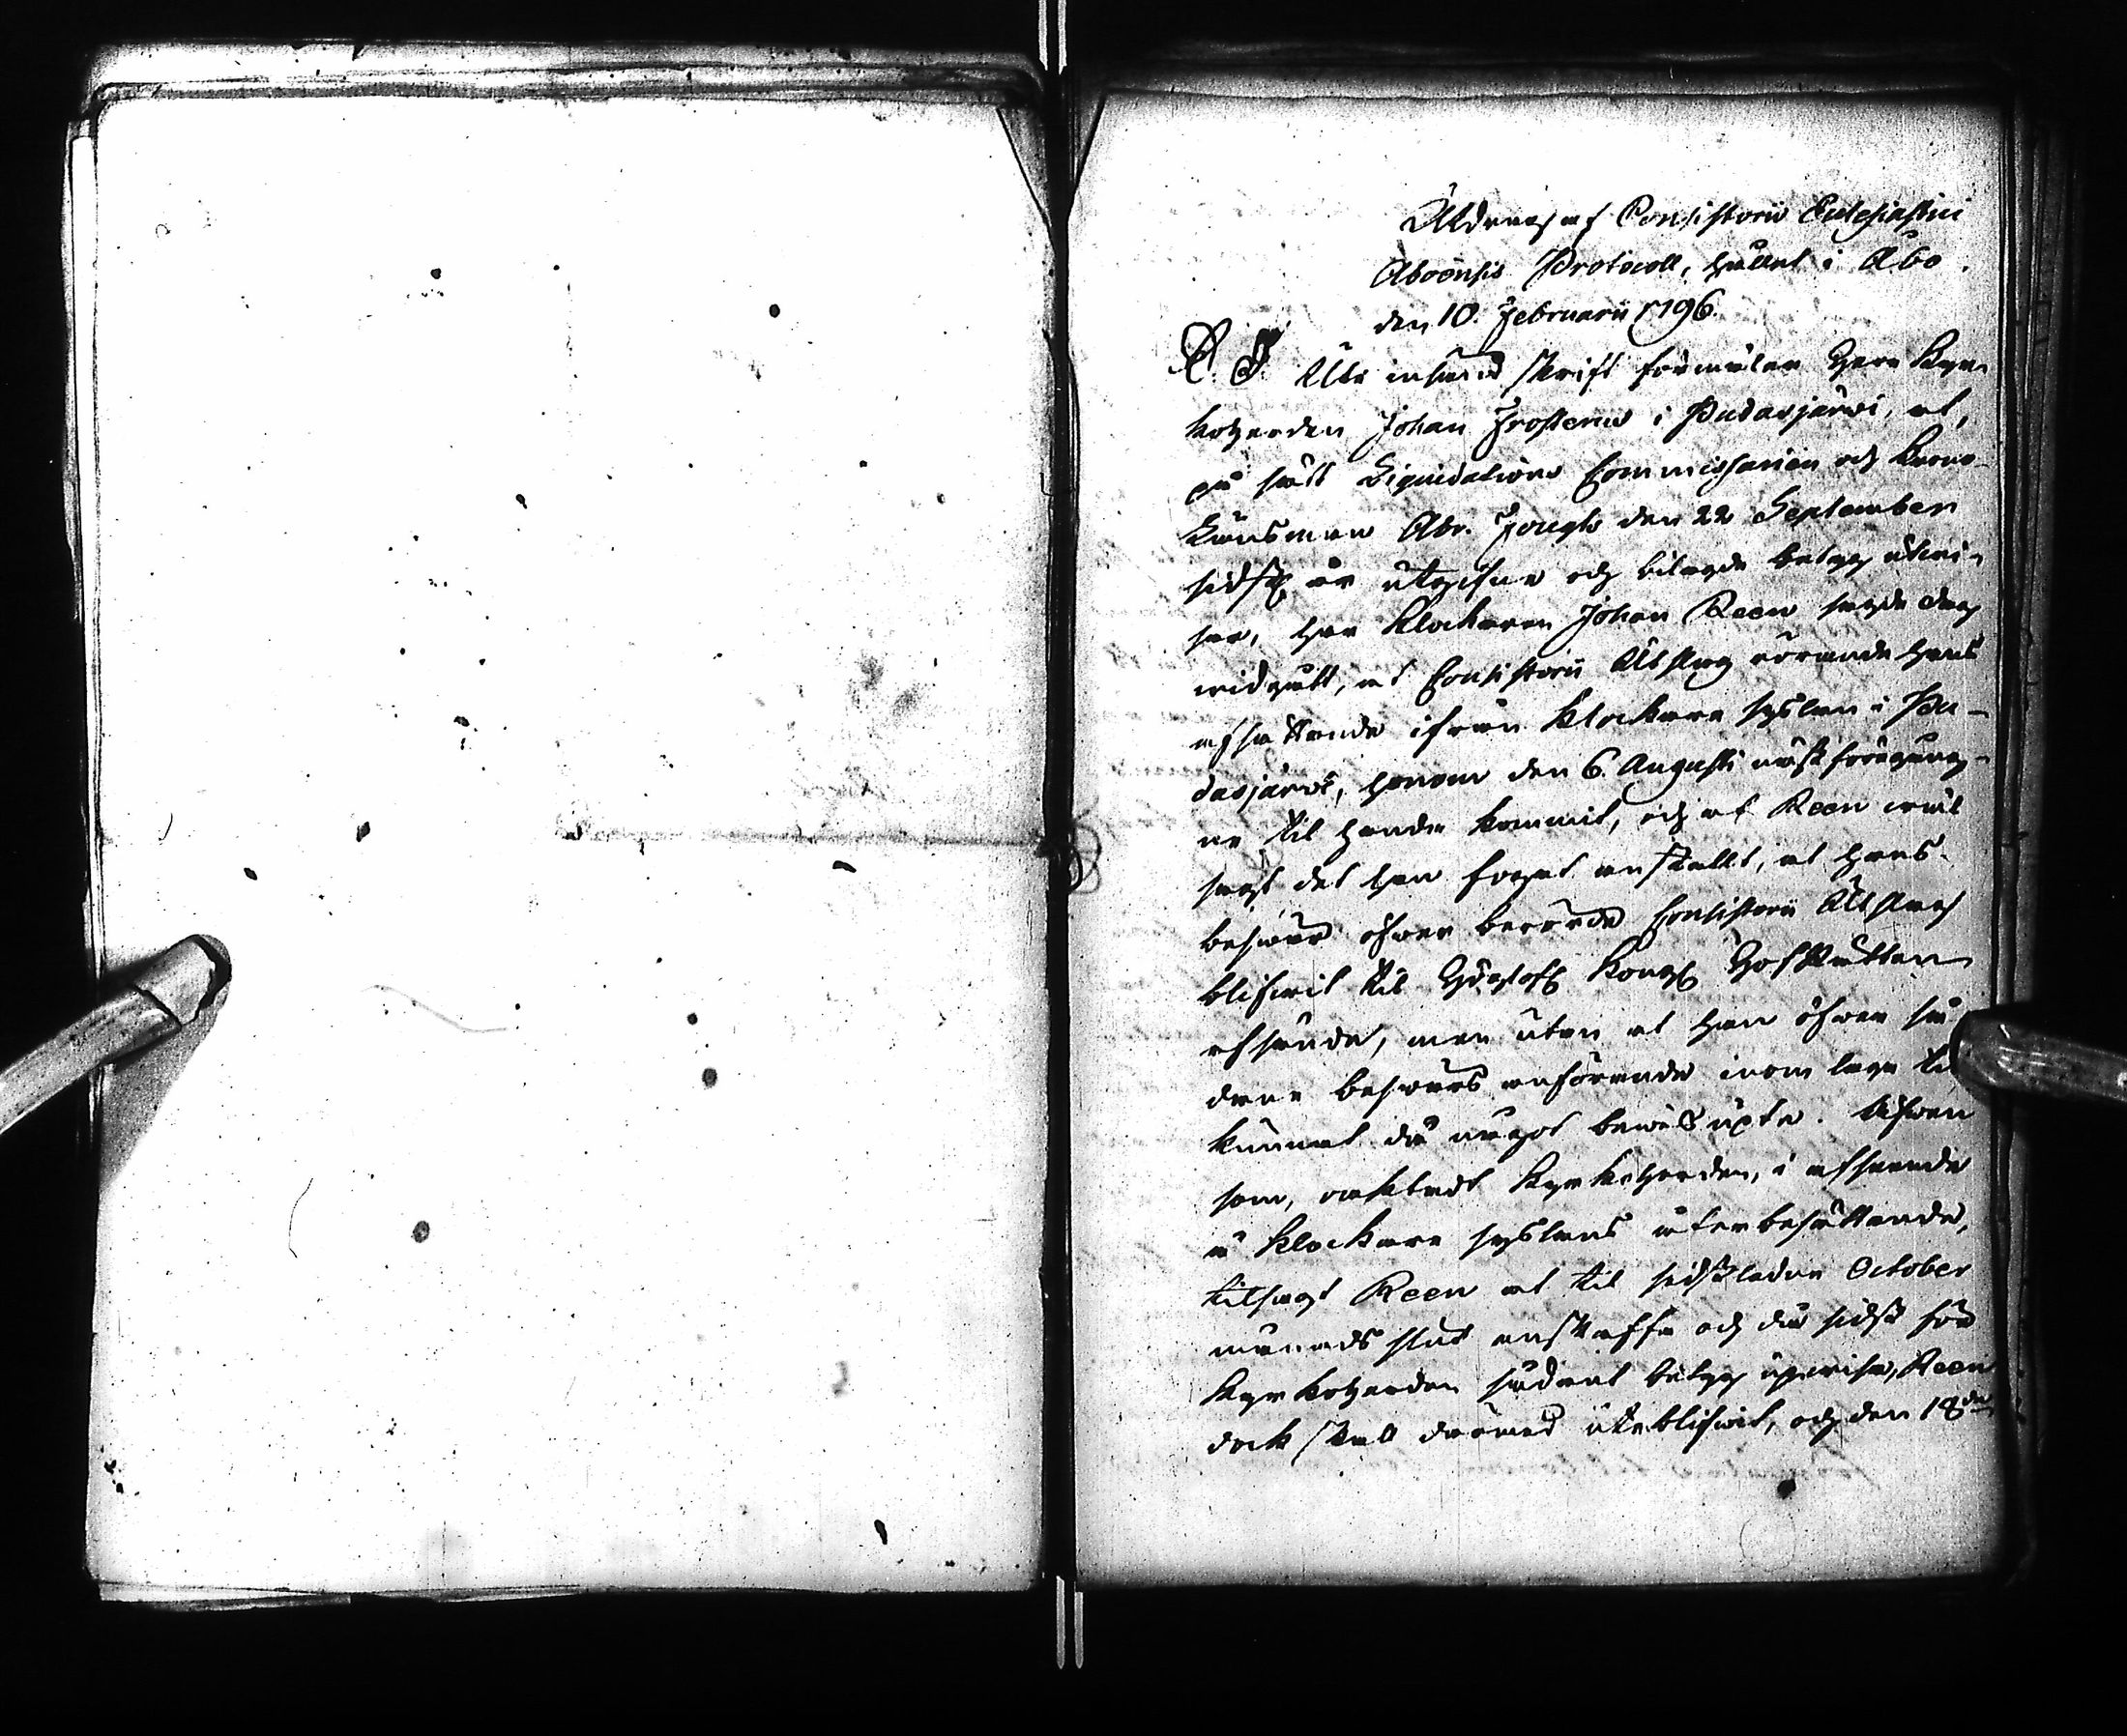 Utdrag af Consistorii Ecclesiastici
Aboënsis Protocoll, hållet i Åbo
den 10. Februarii 1796.
S. D. Uti insänd skrift förmäler Herr Kyr-
koherden Johan Frosterus i Pudasjärvi, at,
på sätt Liquidations Commissarien och Krono-
Länsman Abr. Zongh den 22 September
sidstl. år utgifne och bilagde betyg utwi-
sar, har Klockaren Johan Reen
widgått, at Consistorii Utslag rörande hans
afsättande ifrån Klockare syslan i Pu-
dasjärvi, honom den 6. Augusti näst föregång-
ne til handa kommit, och at Reen wäl
sagt det han fogat anstallt, at hans
beswär öfwer berörde Consistorii Utslag
blifwit til Högstofl. Kongl. HofRätten
afsände, men utan at han öfwer så
dane beswärs anförande inom laga tid
kunnat då något bewis upte. Äfwen
som, oaktadt Kyrkoherden, i afseende
å Klockare syslans återbesättande,
tilsagt Reen at til sidstledne October
månads slut anskaffa och då sidst för
Kyrkoherden sådant betyg upwisa, Reen
dock skall dermed uteblifwit, och den 18de